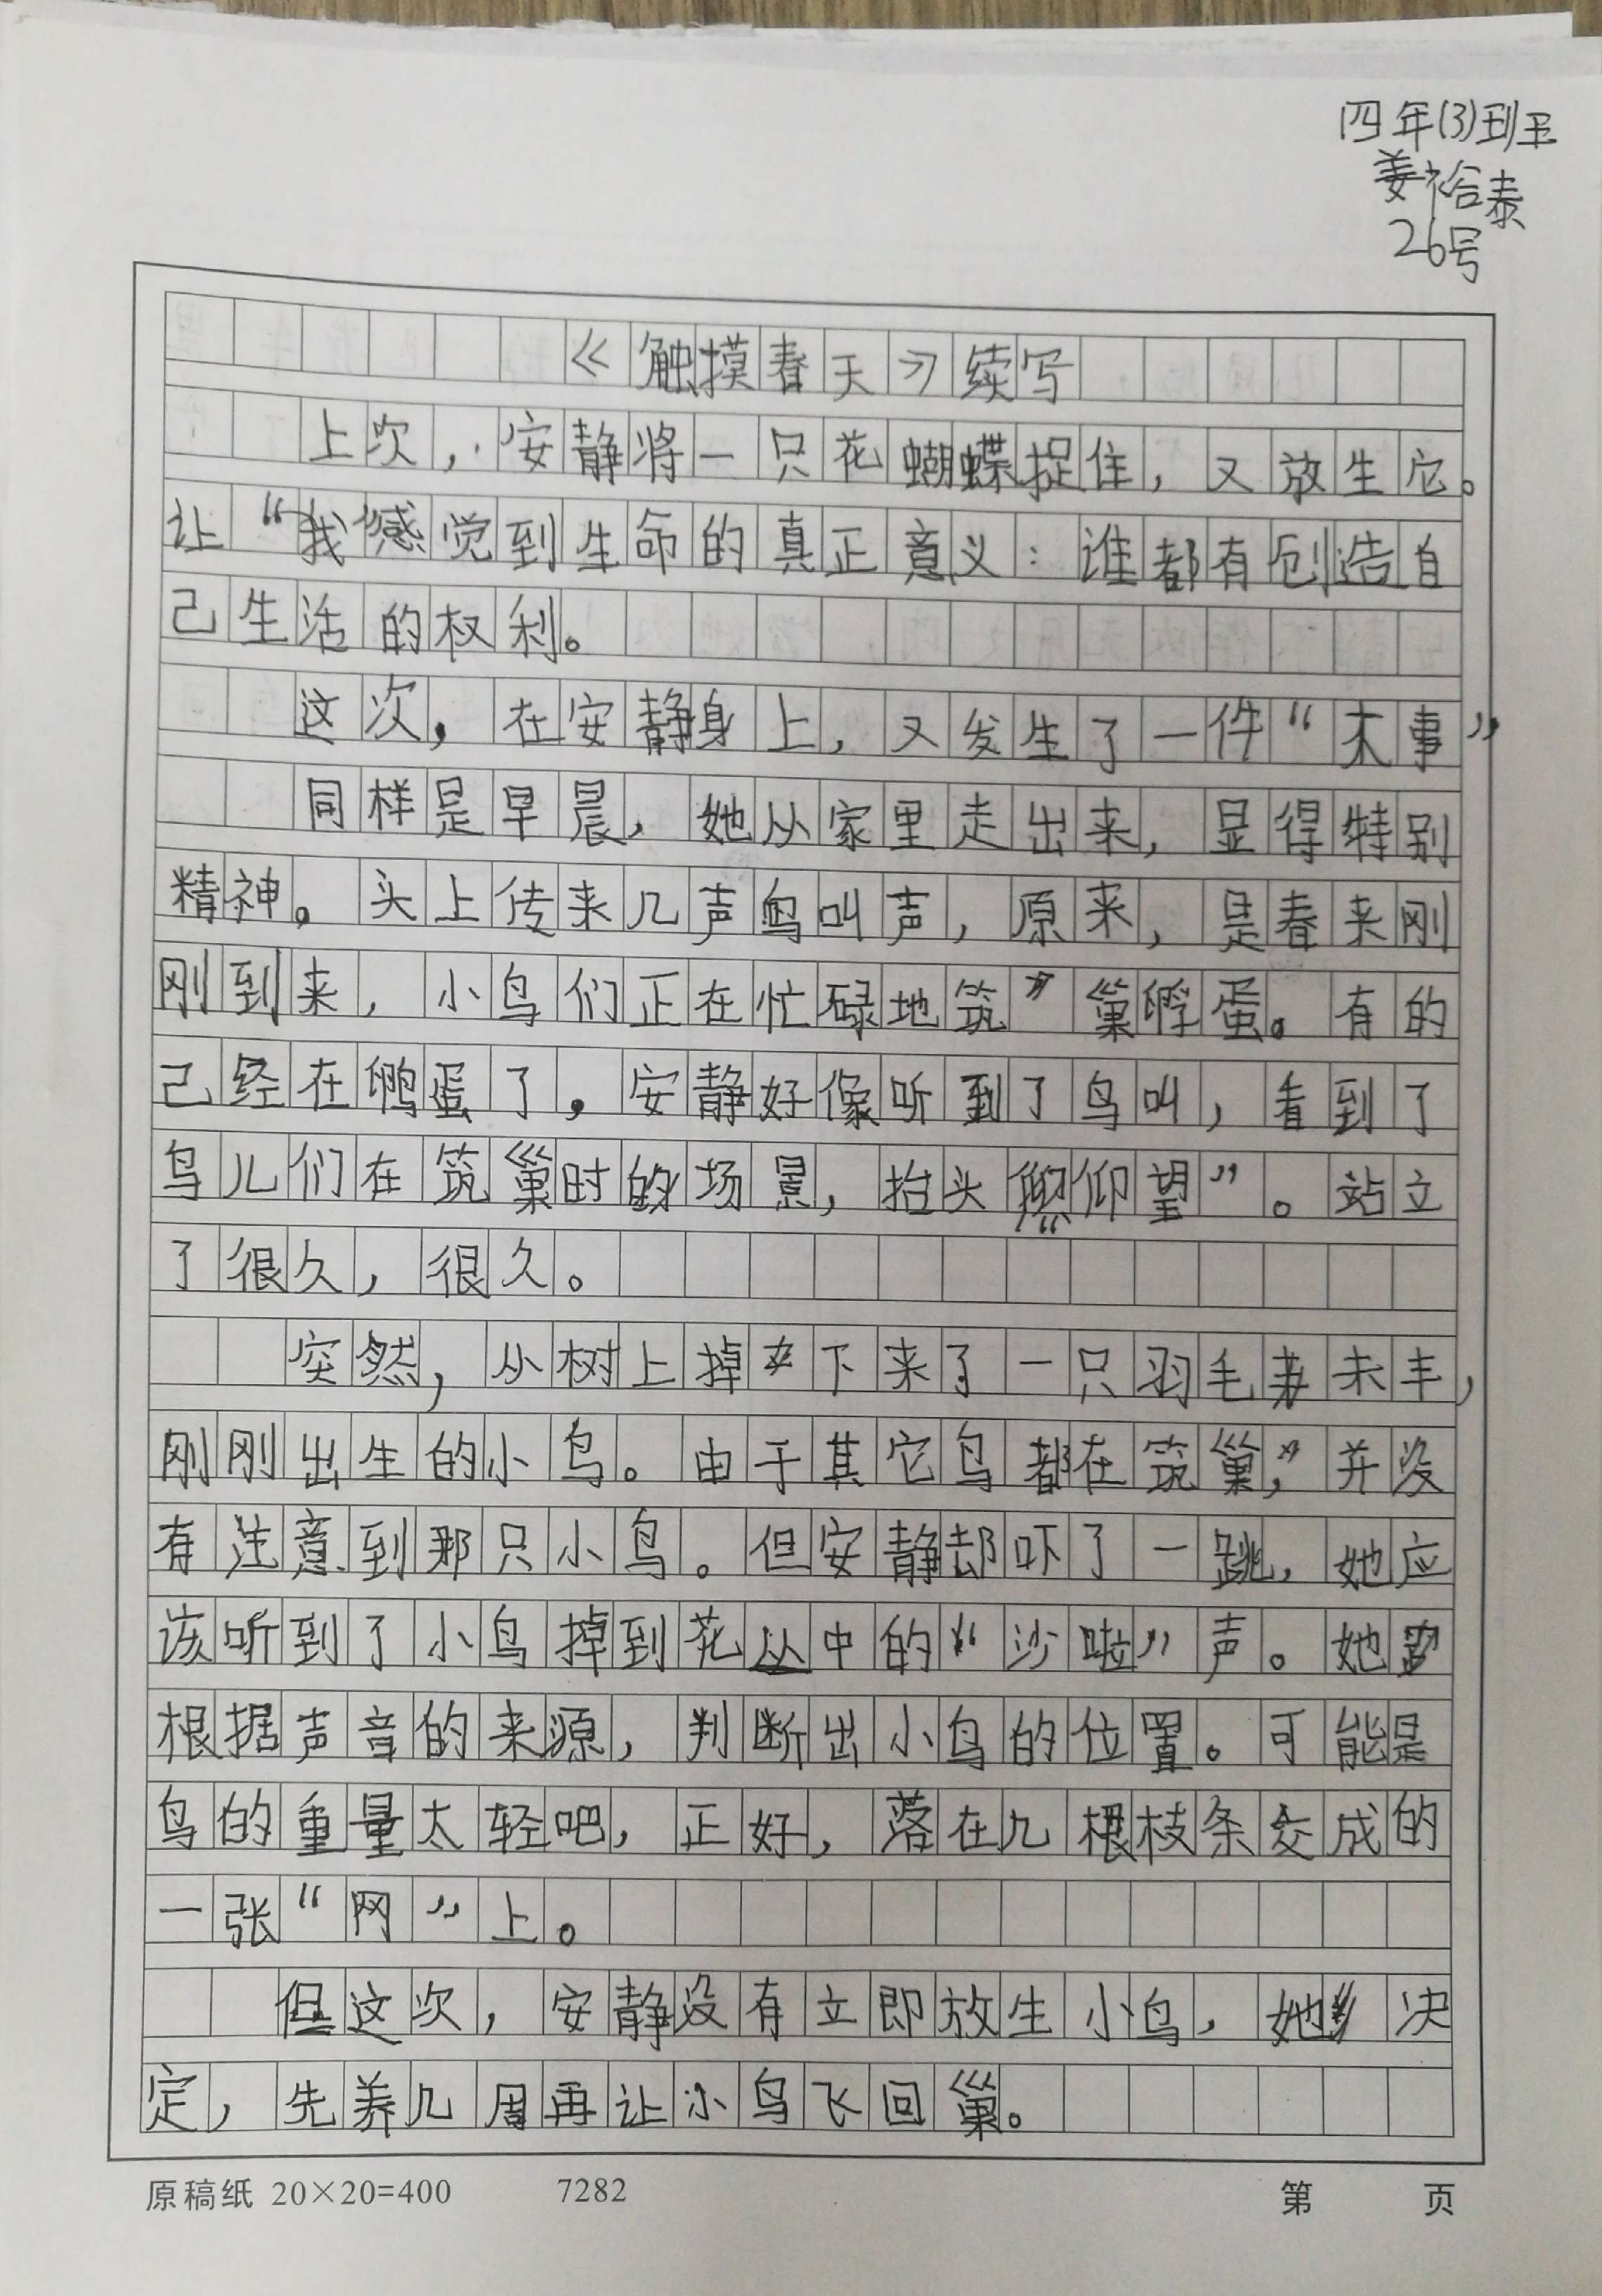 四年(3)班
姜裕泰
26号
《触摸春天》续写
上次，安静将一只花蝴蝶捉住，又放生它。
让“我”感觉到生命的真正意义：谁都有创造自
己生活的权利。
这次，在安静身上，又发生了一件“木事”
同样是早晨，她从家里走出来，显得特别
精神。头上传来几声鸟叫声，原来，是春来刚
刚到来，小鸟们正在忙碌地筑巢孵蛋。有的
己经在孵蛋了，安静好像听到了鸟叫，看到了
鸟儿们在筑巢时的场景，抬头“仰望”。站立
了很久，很久。
突然，从树上掉下来了一只羽毛未丰，
刚刚出生的小鸟。由于其它鸟都在筑巢，并没
有注意到那只小鸟。但安静却吓了一跳，她应
该听到了小鸟掉到花丛中的“沙啦”声。她
根据声音的来源，判断出小鸟的位置。可能是
鸟的重量太轻吧，正好，落在几根枝条交成的
一张“网”上。
但这次，安静没有立即放生小鸟，她决
定，先养几周再让小鸟飞回巢。
原稿纸 20×20=400 7282 第 页